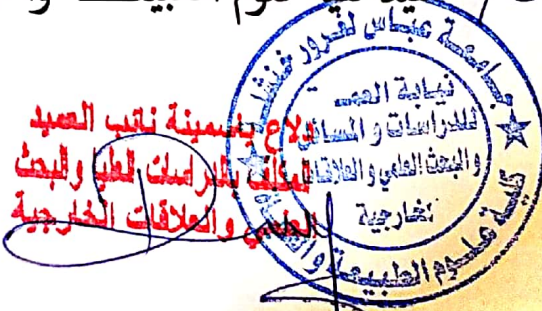 علوم الطبيعة و
جامعة عباس لغرور خنشلة
نيابة العمـ
للدراسات و المسائل
والبحث العلمي و العلاقات
الخارجية
كلية علوم الطبيعة والحياة
بيسمينة نائب العميد
المكلف بالدراسات العليا والبحث
العلمي والعلاقات الخارجية